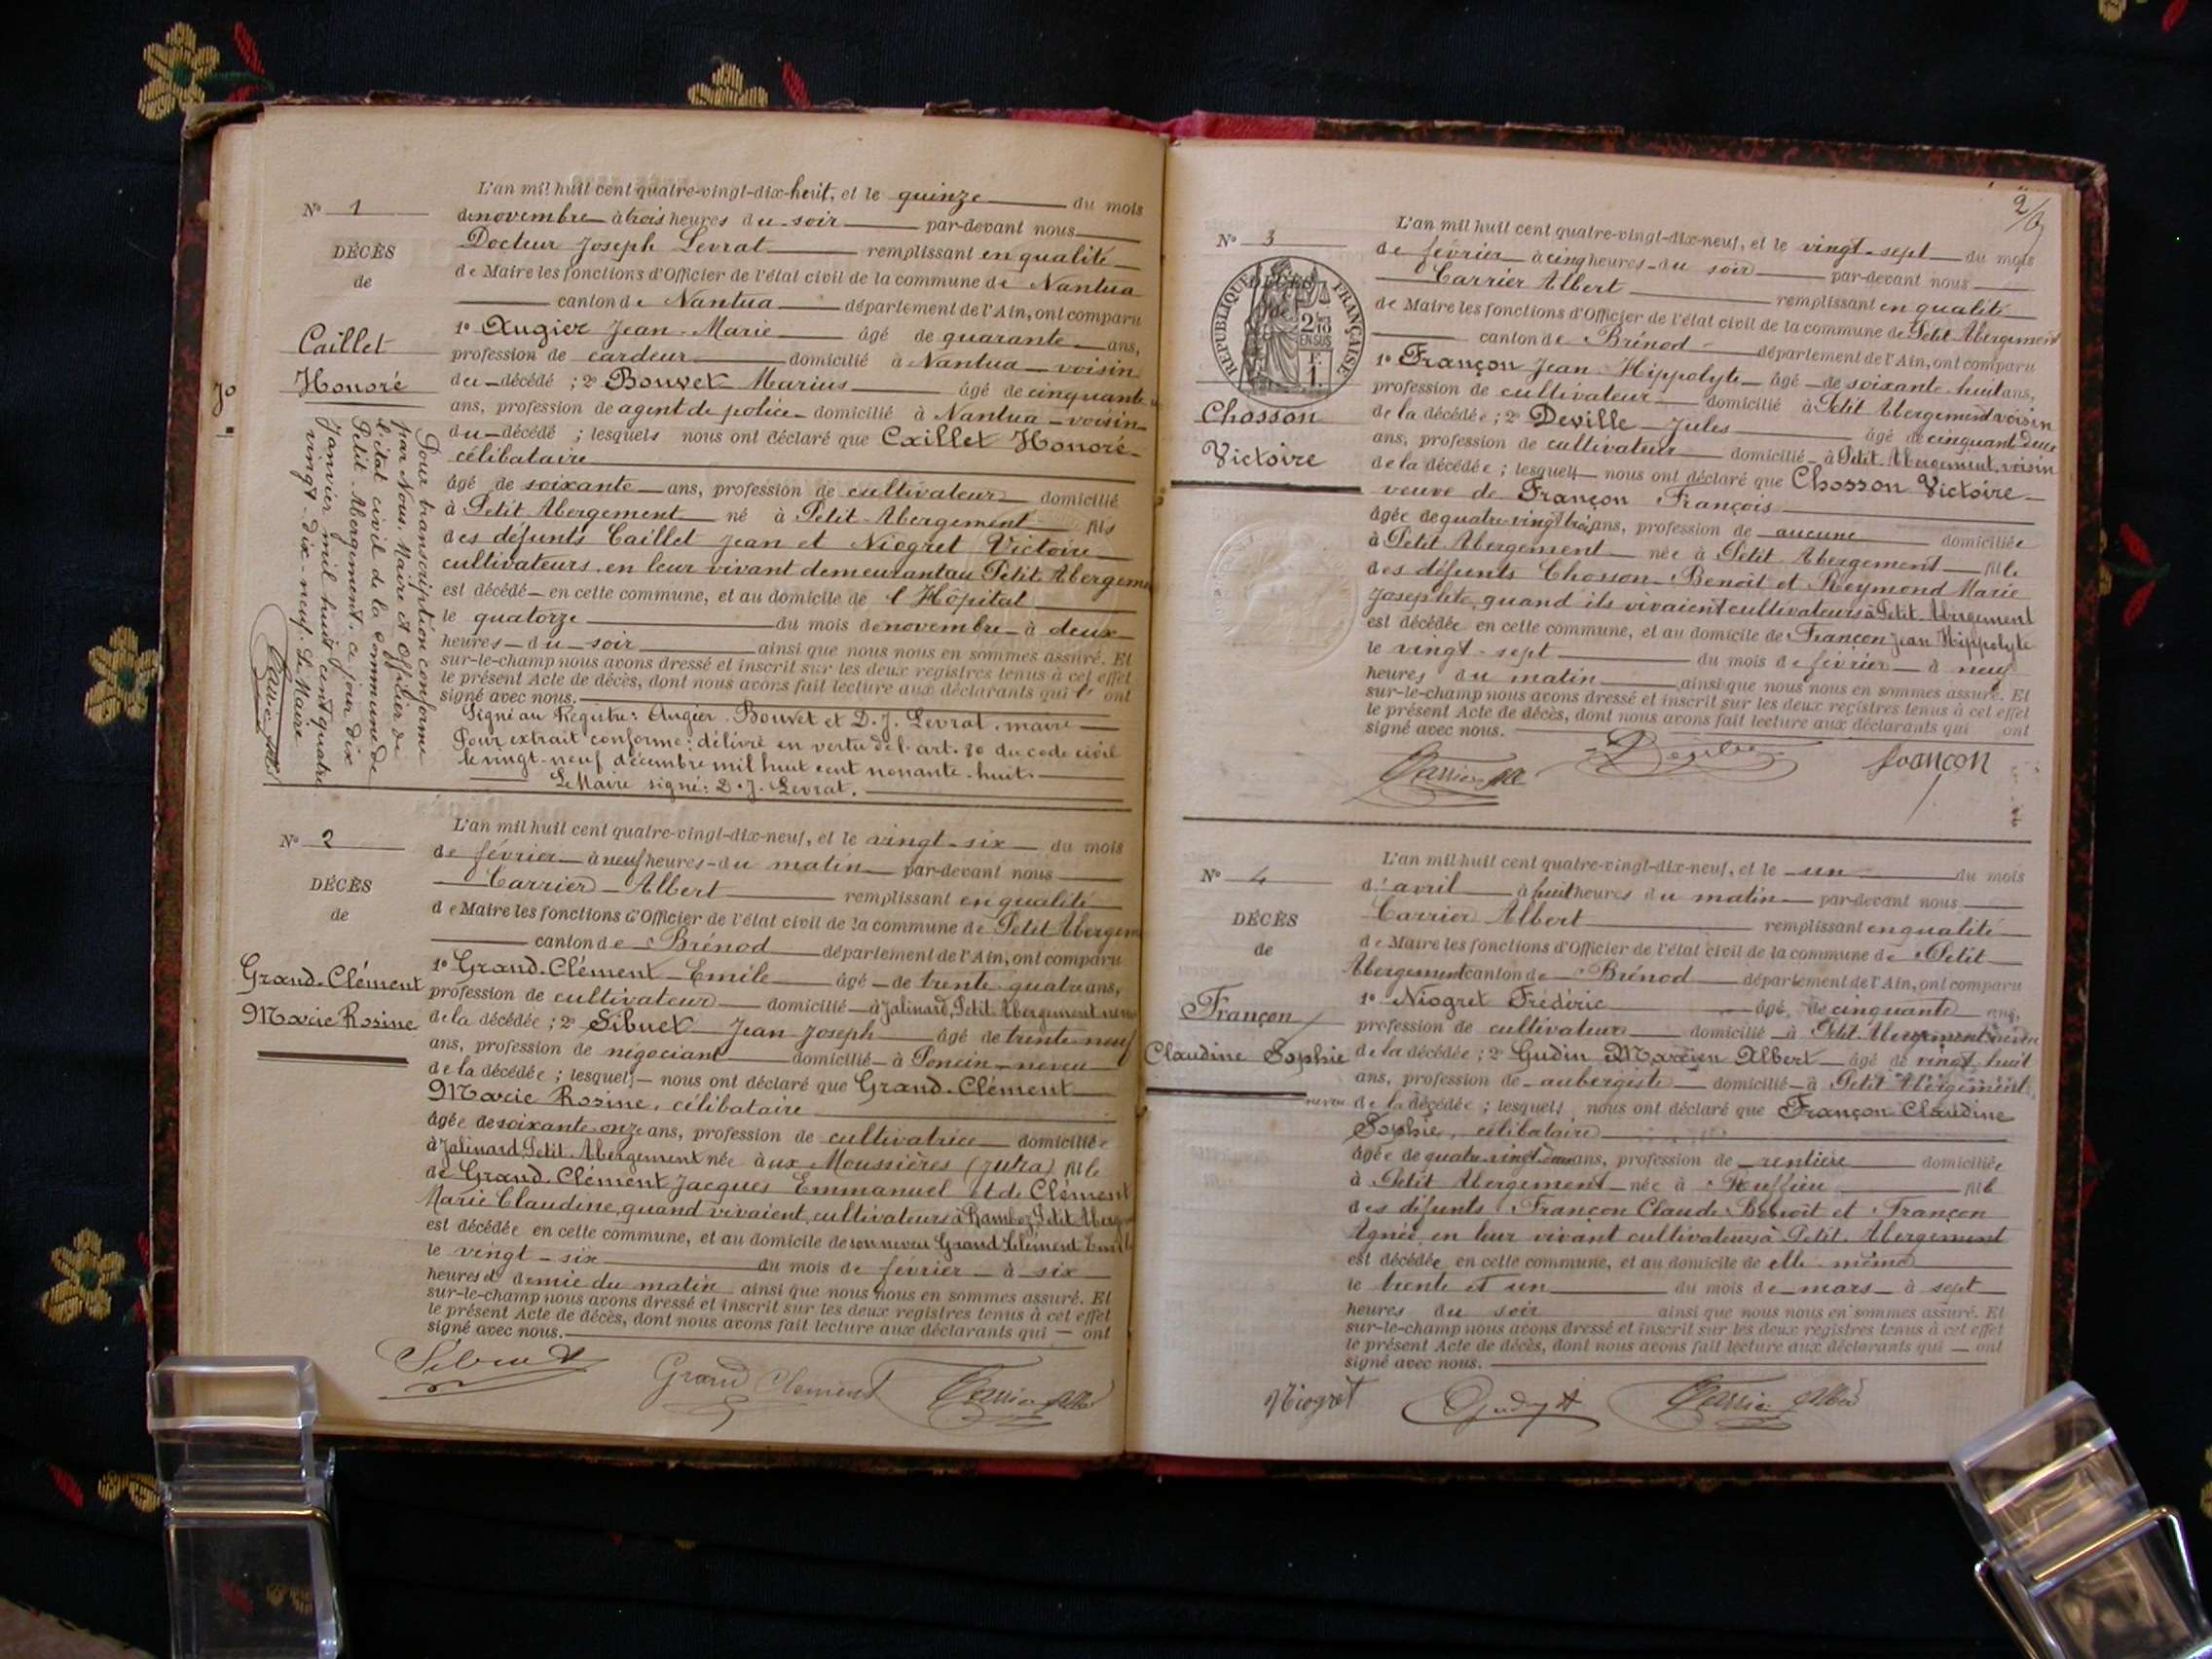 N° 1
DÉCÈS
de
Caillet
Honoré
Pour transcription conforme
par Nous, Maire et Officier de
l'état civil de la commune de
Petit-Abergement, ce jour dix
Janvier mil huit cent quatre
vingt-dix-neuf. Le Maire
L'an mil huit cent quatre-vingt-dix-huit, et le quinze du mois
de novembre à trois heures du soir par-devant nous
Docteur Joseph Levrat remplissant en qualité
de Maire les fonctions d'Officier de l'état civil de la commune de Nantua
canton de Nantua département de l'Ain, ont comparu
1° Augier Jean-Marie âgé de quarante ans,
profession de cardeur domicilié à Nantua voisin
du décédé ; 2° Bouvet Marius âgé de cinquante
ans, profession de agent de police domicilié à Nantua voisin
du décédé ; lesquels nous ont déclaré que Caillet Honoré
célibataire
âgé de soixante ans, profession de cultivateur domicilié
à Petit Abergement né à Petit-Abergement fils
des défunts Caillet Jean et Niogret Victoire
cultivateurs, en leur vivant demeurant au Petit Abergeme
est décédé en cette commune, et au domicile de l'Hôpital
le quatorze du mois de novembre à deux
heures du soir ainsi que nous nous en sommes assuré. Et
sur-le-champ nous avons dressé et inscrit sur les deux registres tenus à cet effet
le présent Acte de décès, dont nous avons fait lecture aux déclarants qui l' ont
signé avec nous.
Signé au Registre: Augier, Bouvet et D. J. Levrat, maire
Pour extrait conforme: délivré en vertu de l'art. 80 du code civil
le vingt-neuf décembre mil huit cent nonante-huit.
Le Maire signé: D. J. Levrat.
N° 2
DÉCÈS
de
Grand-Clément
Marie Rosine
L'an mil huit cent quatre-vingt-dix-neuf, et le vingt-six du mois
de février à neuf heures du matin par-devant nous
Carrier Albert remplissant en qualité
de Maire les fonctions d'Officier de l'état civil de la commune de Petit Abergem
canton de Brénod département de l'Ain, ont comparu
1° Grand-Clément Emile âgé de trente quatre ans,
profession de cultivateur domicilié à Jalinard, Petit Abergement neveu
de la décédée ; 2° Sibuet Jean Joseph âgé de trente neuf
ans, profession de négociant domicilié à Poncin neveu
de la décédée ; lesquels nous ont déclaré que Grand-Clément
Marie Rosine, célibataire
âgée de soixante onze ans, profession de cultivatrice domiciliée
à Jalinard, Petit-Abergement née aux Moussières (Jura) fille
de Grand-Clément Jacques Emmanuel et de Clément
Marie Claudine, quand vivaient, cultivateurs à Ramboz, Petit Aberg
est décédée en cette commune, et au domicile de son neveu Grand Clément Emile
le vingt-six du mois de février à six
heures et demie du matin ainsi que nous nous en sommes assuré. Et
sur-le-champ nous avons dressé et inscrit sur les deux registres tenus à cet effet
le présent Acte de décès, dont nous avons fait lecture aux déclarants qui ont
signé avec nous.
Sibuet Grand Clement Carrier Albert
2/
N° 3
DÉCÈS
de
RÉPUBLIQUE FRANÇAISE
2/10 EN SUS
F. 1.
Chosson
Victoire
L'an mil huit cent quatre-vingt-dix-neuf, et le vingt-sept du mois
de février à cinq heures du soir par-devant nous
Carrier Albert remplissant en qualité
de Maire les fonctions d'Officier de l'état civil de la commune de Petit Abergement
canton de Brénod département de l'Ain, ont comparu
1° Françon Jean-Hippolyte âgé de soixante-huit ans,
profession de cultivateur domicilié à Petit Abergement voisin
de la décédée ; 2° Deville Jules âgé de cinquant deux
ans, profession de cultivateur domicilié à Petit-Abergement, voisin
de la décédée ; lesquels nous ont déclaré que Chosson Victoire
veuve de Françon François
âgée de quatre-vingt trois ans, profession de aucune domiciliée
à Petit Abergement née à Petit Abergement fille
des défunts Chosson Benoit et Reymond Marie
Josephte, quand ils vivaient cultivateurs à Petit-Abergement
est décédée en cette commune, et au domicile de Françon Jean Hippolyte
le vingt-sept du mois de février à neuf
heures du matin ainsi que nous nous en sommes assuré. Et
sur-le-champ nous avons dressé et inscrit sur les deux registres tenus à cet effet
le présent Acte de décès, dont nous avons fait lecture aux déclarants qui ont
signé avec nous.
Carrier Alb Deville françon
N° 4
DÉCÈS
de
Françon
Claudine Sophie
L'an mil huit cent quatre-vingt-dix-neuf, et le un du mois
d'avril à huit heures du matin par-devant nous
Carrier Albert remplissant en qualité
de Maire les fonctions d'Officier de l'état civil de la commune de Petit
Abergement canton de Brénod département de l'Ain, ont comparu
1° Niogret Frédéric âgé de cinquante ans,
profession de cultivateur domicilié à Petit Abergement neveu
de la décédée ; 2° Gudin Marcien Albert âgé de vingt huit
ans, profession de aubergiste domicilié à Petit Abergement,
neveu de la décédée ; lesquels nous ont déclaré que Françon Claudine
Sophie, célibataire
âgée de quatre-vingt ans, profession de rentière domiciliée
à Petit Abergement née à Ruffieu fille
des défunts Françon Claude Benoit et Françon
Agnée, en leur vivant cultivateurs à Petit-Abergement
est décédée en cette commune, et au domicile de elle-même
le trente et un du mois de mars à sept
heures du soir ainsi que nous nous en sommes assuré. Et
sur-le-champ nous avons dressé et inscrit sur les deux registres tenus à cet effet
le présent Acte de décès, dont nous avons fait lecture aux déclarants qui ont
signé avec nous.
Niogret Gudin A Carrier Albert